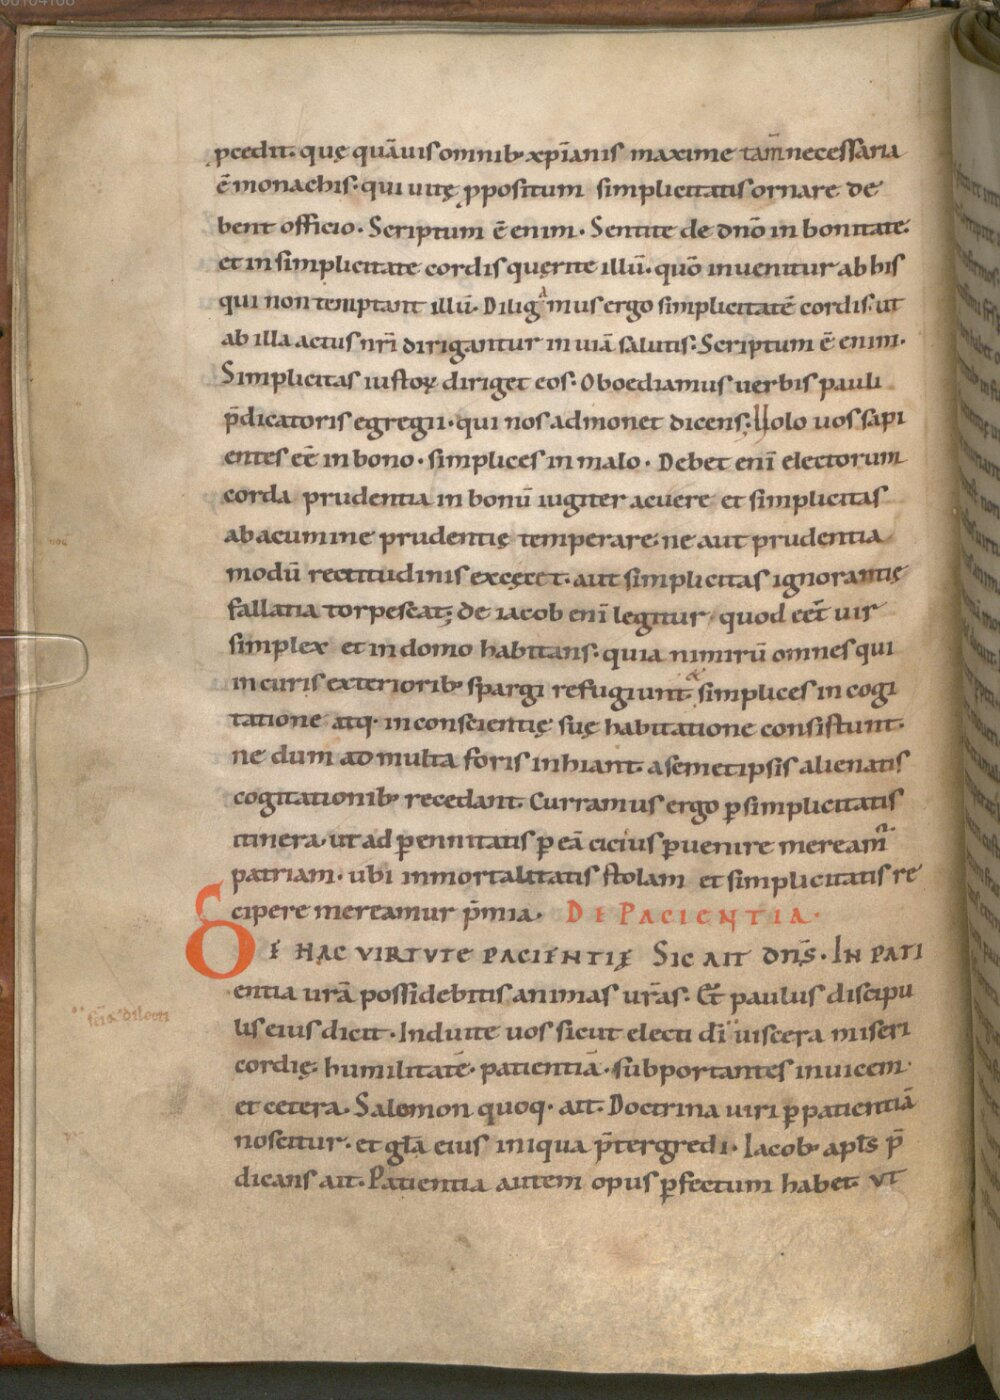 p̱cedit. quę quāuis omnib; xp̄ianis maxime tam̄ necessaria
ē monachis. qui uitę ppositum simplicitatis ornare de
bent officio. Scriptum ē enim. Sentite de dnō in bonitate.
et in simplicitate cordis querite illū. quō inuenitur ab his
qui non temptant illū. Diligamus ergo simplicitatē cordis. ut
ab illa actus nr̄i dirigantur in uiā salutis. Scriptum ē enim.
Simplicitas iustoꝝ diriget eos. Oboediamus uerbis pauli
p̄dicatoris egregii. qui nos admonet dicens. Uolo uos sapi
entes eē in bono. simplices in malo. Debet enī electorum
corda prudentia in bonū iugiter acuere et simplicitas
ab acumine prudentię temperare. ne aut prudentia
modū rectitudinis excęcet. aut simplicitas ignorantię
fallatia torpescat; de iacob enī legitur, quod eēt uir
simplex et in domo habitans. quia nimirū omnes qui
in curis exteriorib; spargi refugiunt. & simplices in cogi
tatione atq. in conscientię suę habitatione consistunt.
ne dum ad multa foris inhiant. a semetipsis alienatis
cogitationib; recedant. Curramus ergo ꝑ simplicitatis
itinera. ut ad ꝑennitatis ꝑ eā cicius ꝑuenire mereamr̄
patriam. ubi inmortalitatis stolam et simplicitatis re
cipere mereamur p̄mia. DE PACIENTIA.
DE HAC VIRTVTE PACIENTIĘ SIC AIT dn̄s. IN PATI
entia ur̄a possidebitis animas ur̄as. Et paulus discipu
lis eius dicit. Induite uos sicut electi dī uiscera miseri
sc̄i & dilecti
cordię. humilitatē. patientiā. subportantes inuicem.
et cetera. Salomon quoq. ait. Doctrina uiri ꝑ patientiā
noscitur. et gl̄a eius iniqua p̄tergredi. Iacob; apl̄s p̄
dicans ait. Patientia autem opus ꝑfectum habet. vt